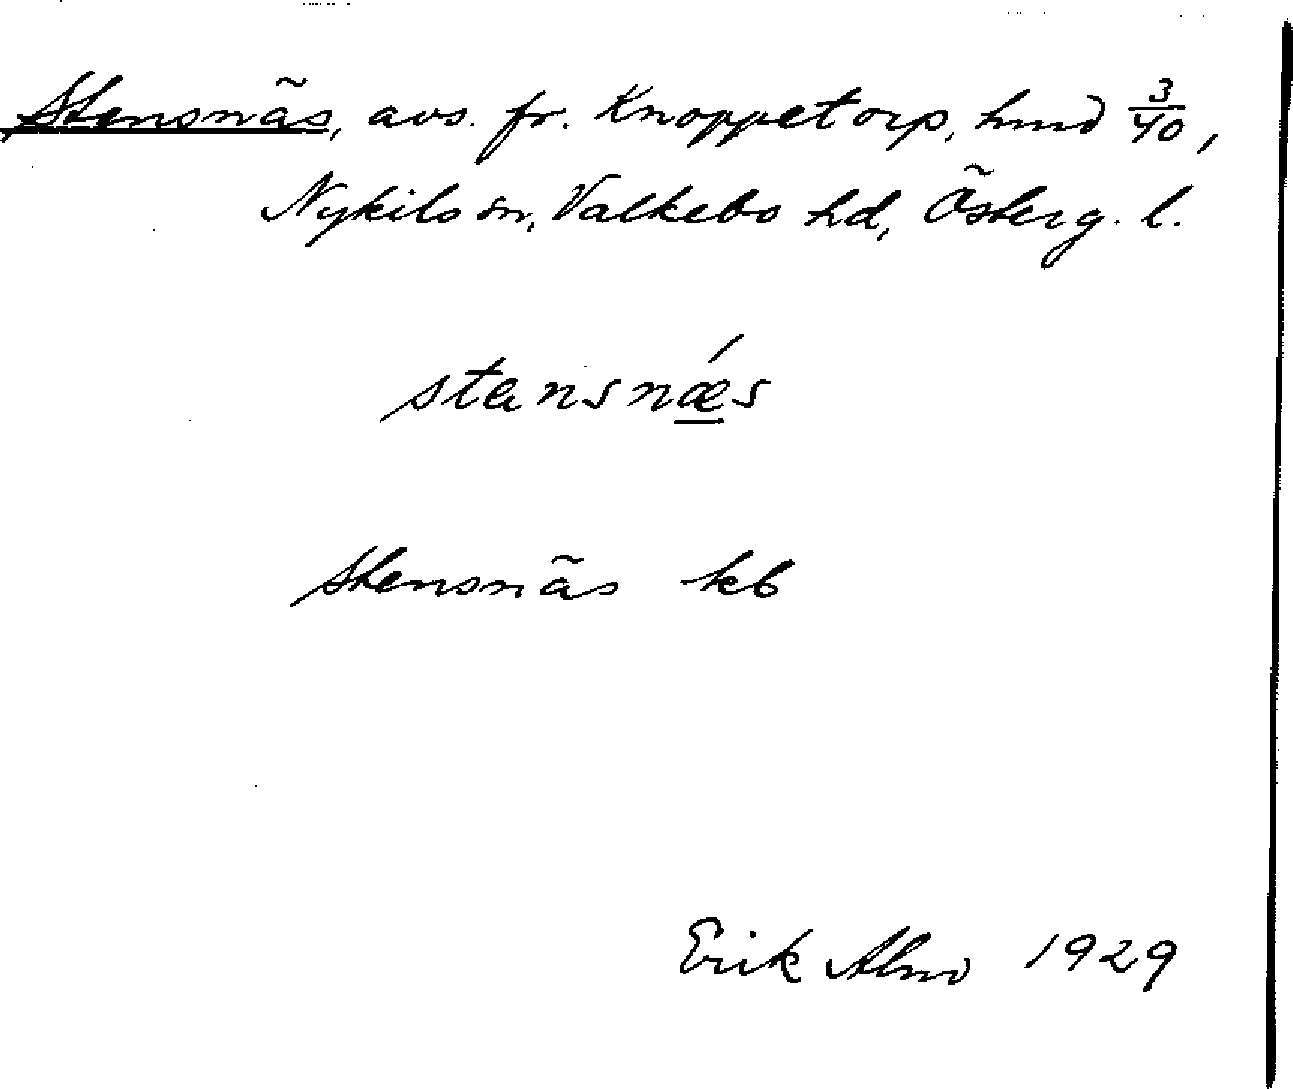 Stensnäs, avs. fr. Knoppetorp, hmd 3/40,
Nykils sn, Valkebo hd, Österg. l.
stensnǽs
Stensnäs kb
Erik Abmo 1929